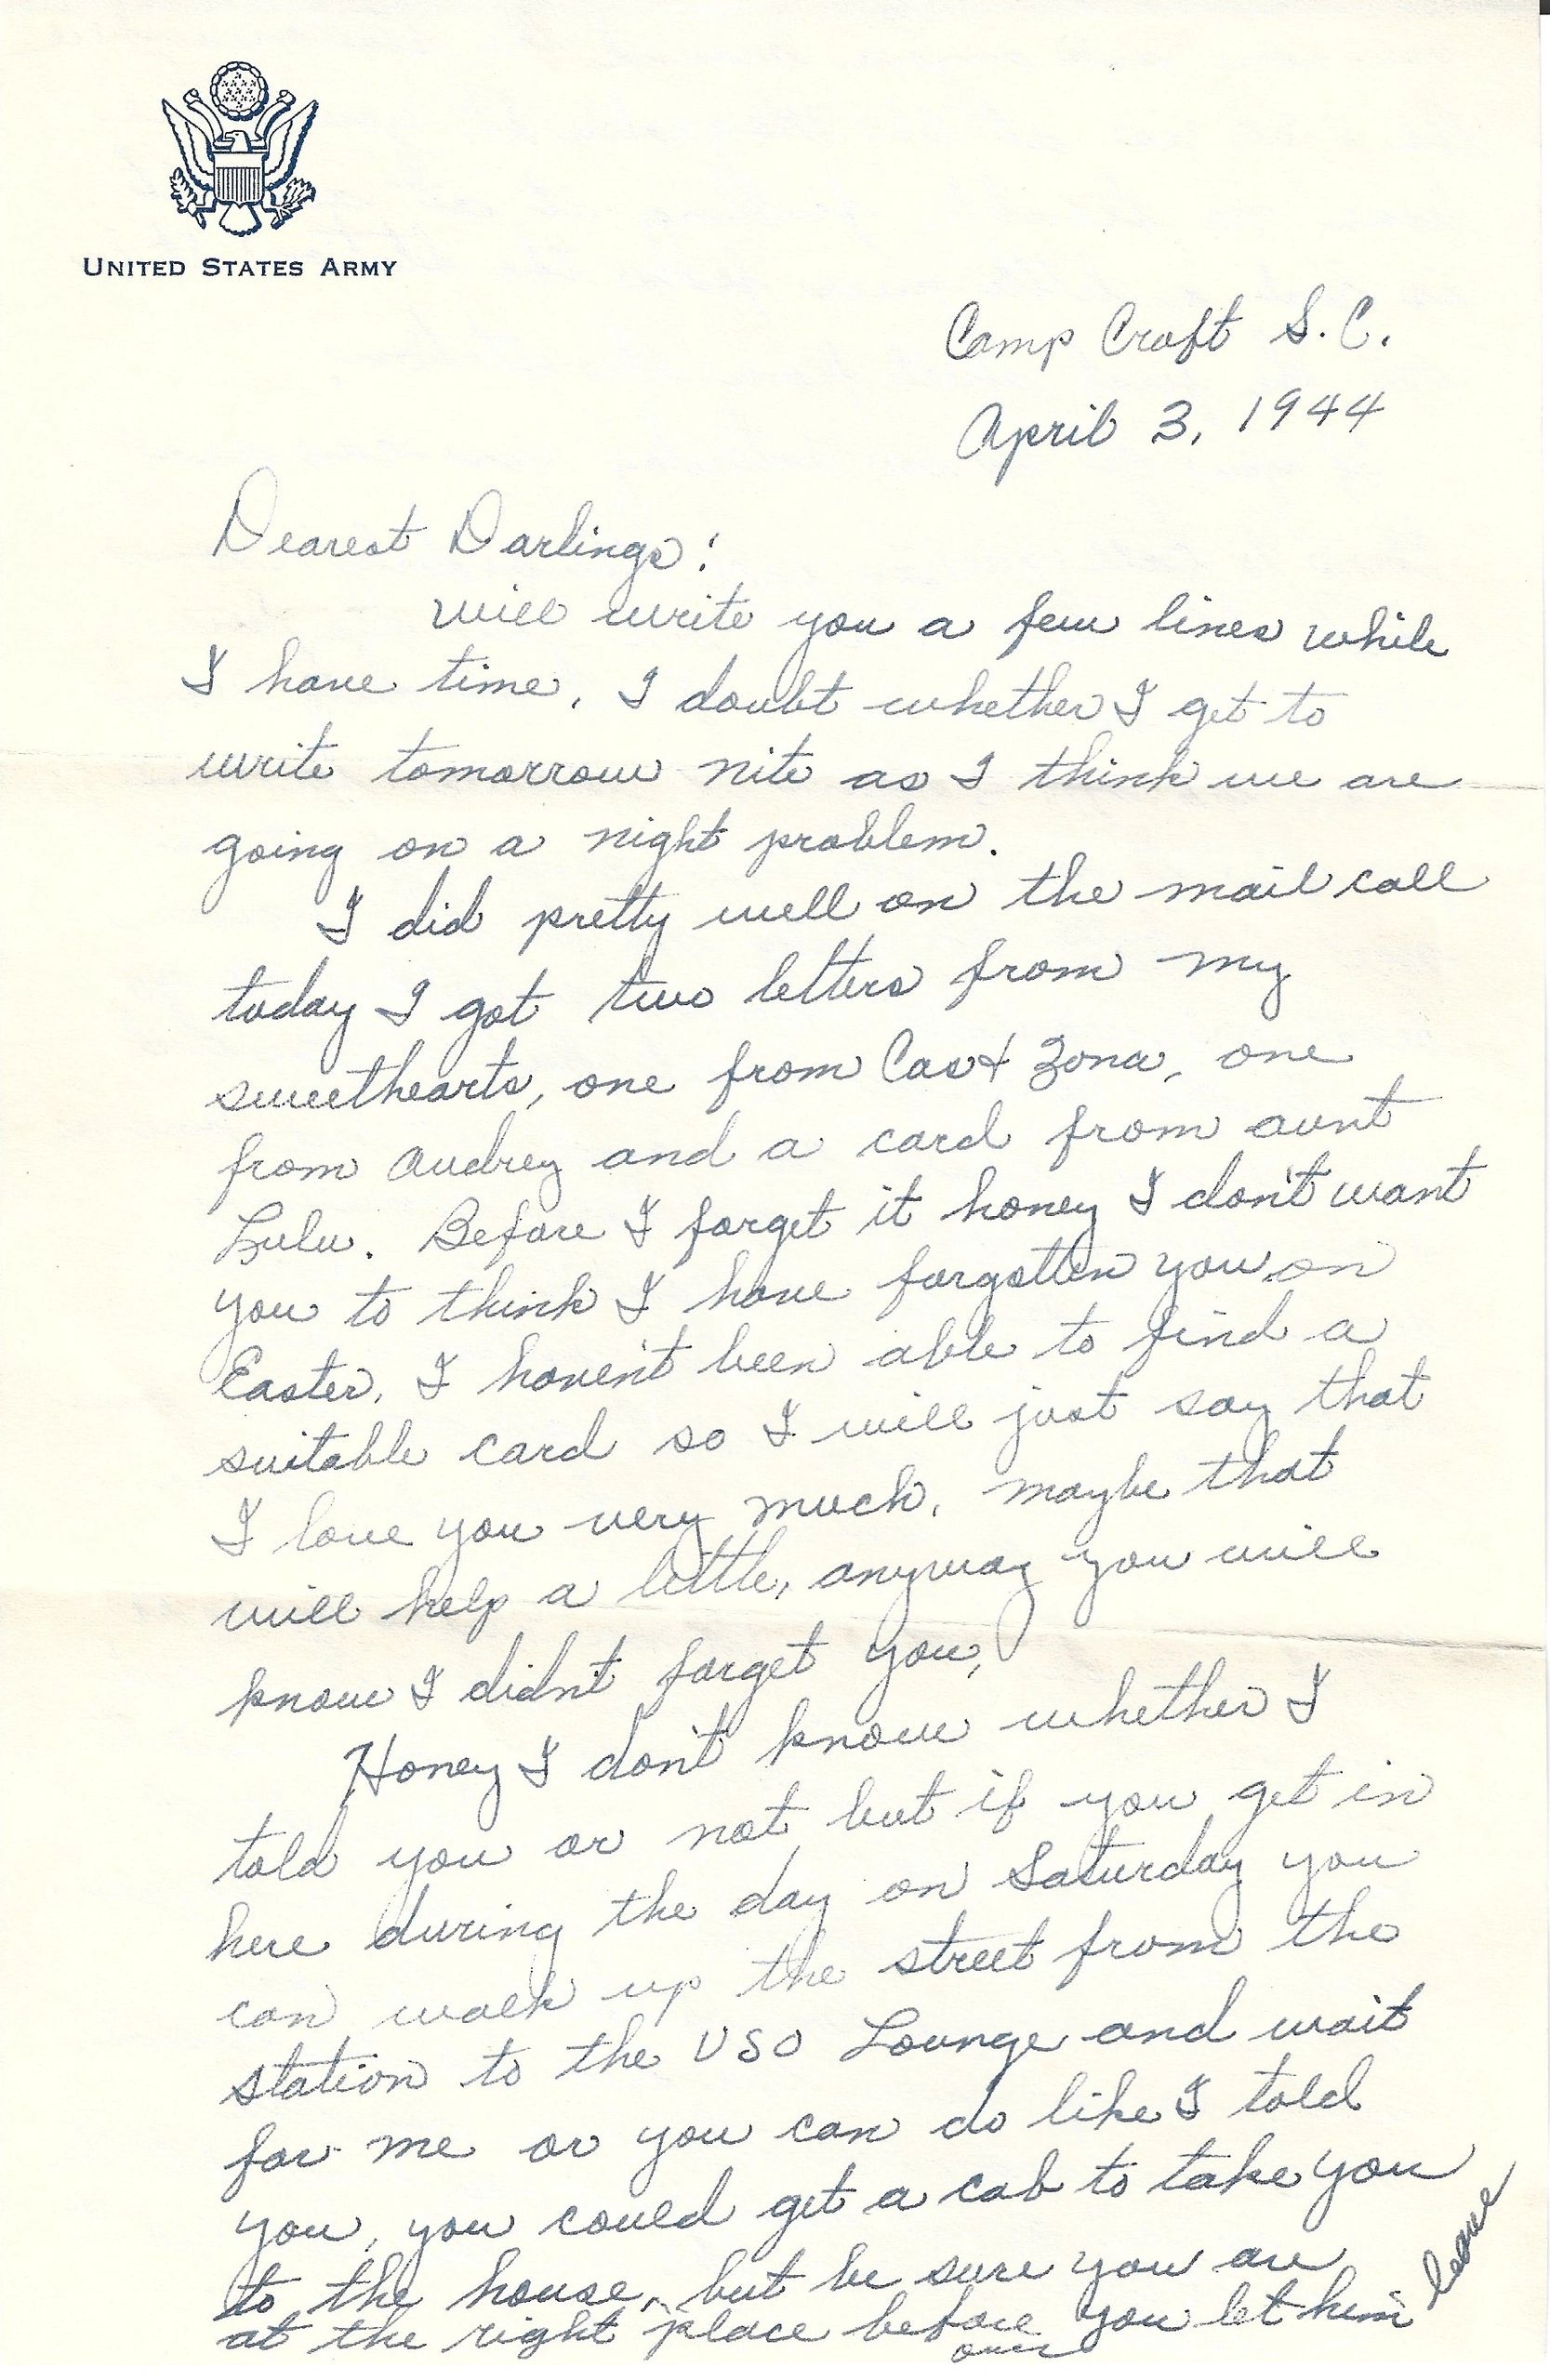 UNITED STATES ARMY
Camp Croft S.C.
April 3, 1944
Dearest Darlings:
will write you a few lines while
I have time, I doubt whether I get to
write tomorrow nite as I think we are
going on a night problem.
I did pretty well on the mail call
today I got two letters from my
sweethearts, one from Cas & Zona, one
from Audrey and a card from aunt
Lulu. Before I forget it honey I don't want
you to think I have forgotten you on
Easter, I haven't been able to find a
suitable card so I will just say that
I love you very much, maybe that
will help a little, anyway you will
know I didn't forget you,
Honey I don't know whether I
told you or not but if you get in
here during the day on Saturday you
can walk up the street from the
station to the USO Lounge and wait
for me or you can do like I told
you, you could get a cab to take you
to the house, but be sure you are
at the right place before you let him leave
over